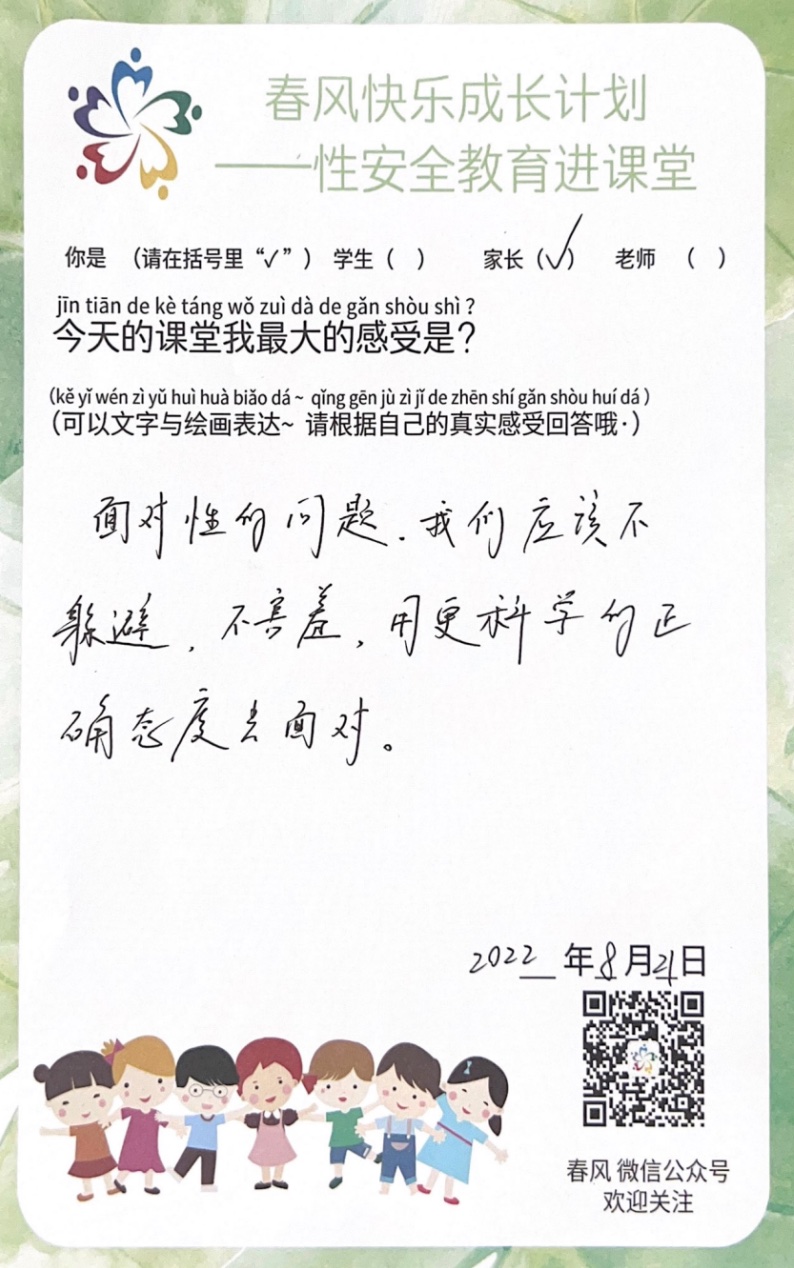 春风快乐成长计划
——性安全教育进课堂
你是 （请在括号里“✓”） 学生（ ） 家长（✓） 老师 （ ）
jīn tiān de kè táng wǒ zuì dà de gǎn shòu shì？
今天的课堂我最大的感受是？
（kě yǐ wén zì yǔ huì huà biǎo dá~ qǐng gēn jù zì jǐ de zhēn shí gǎn shòu huí dá）
（可以文字与绘画表达~ 请根据自己的真实感受回答哦·）
面对性的问题.我们应该不
躲避，不害羞，用更科学的正
确态度去面对。
2022 年8月21日
春风 微信公众号
欢迎关注